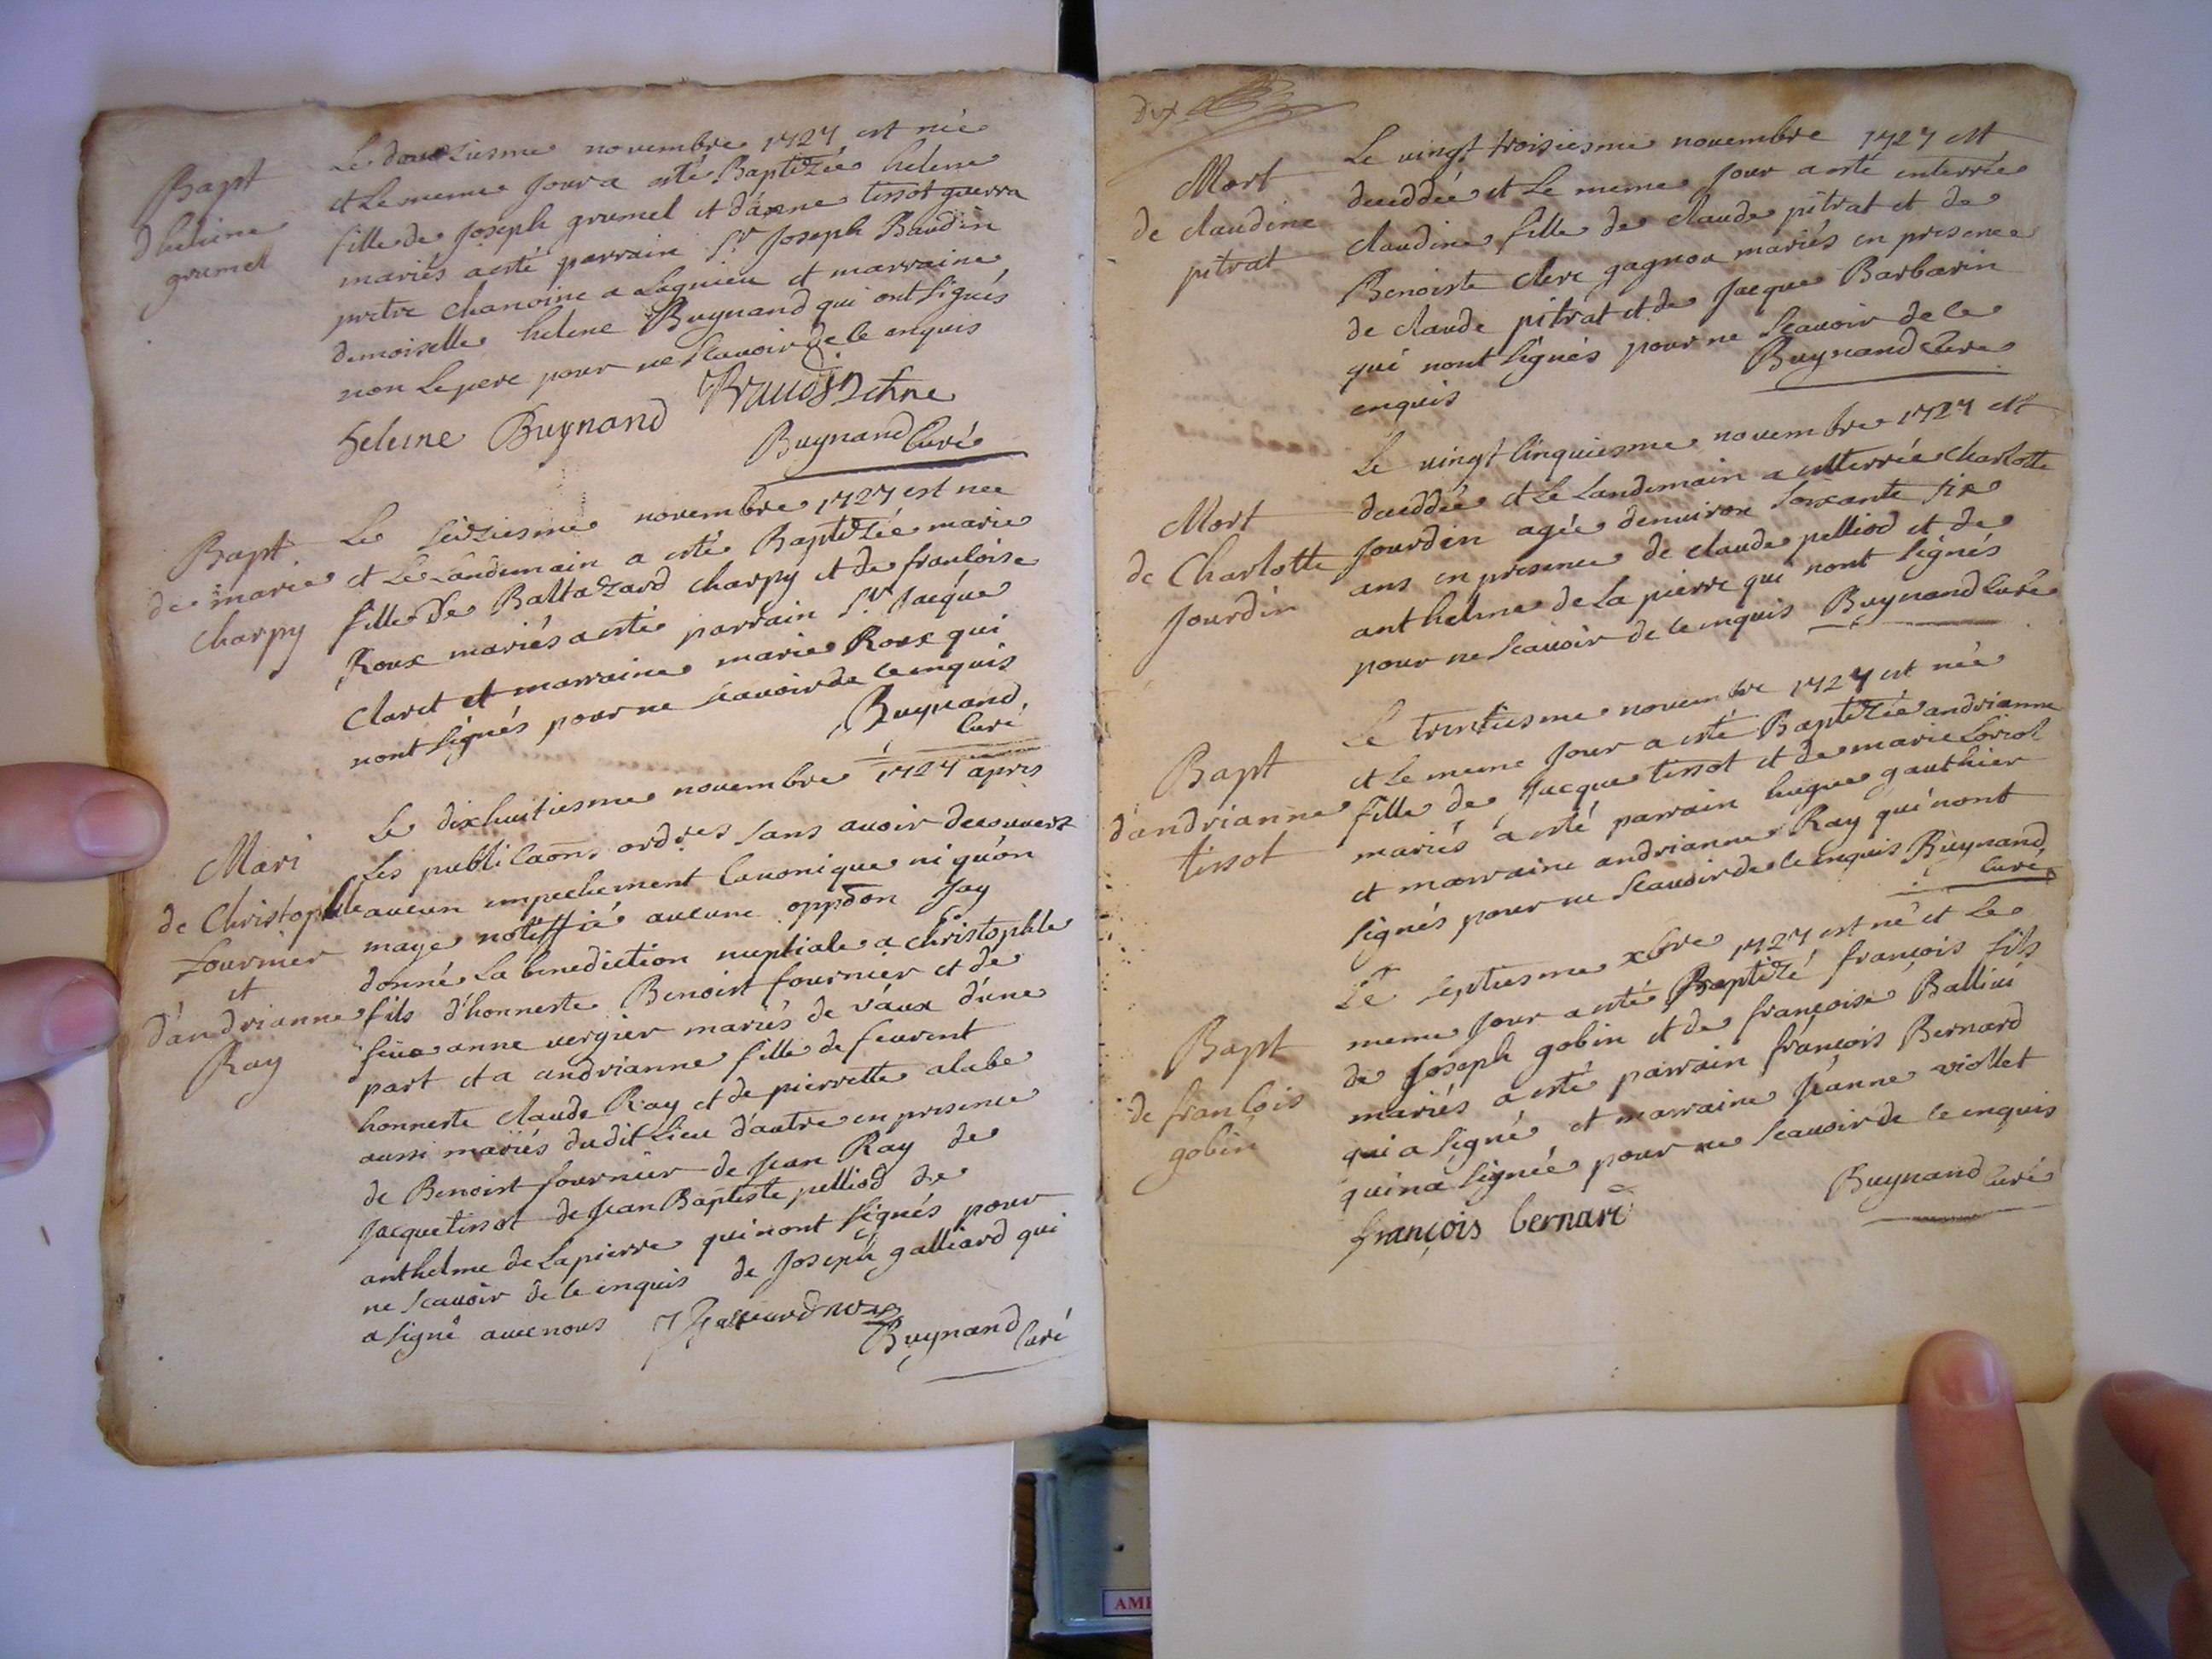 Bapt
d'heleine
grumel
Le douziesme novembre 1727 est née
et Le meme Jour a esté Baptizée helene
fille de Joseph grumel et d'anne tissot guerra
mariés a esté parrain Sr Joseph Baudin
pretre chanoine a Lagnieu et marraine
demoiselle helene Buynand qui ont signés
non Le pere pour ne scauoir de ce enquis
helene Buynand Baudin
Buynand Curé
Bapt
de marie
charpy
Le seiziesme novembre 1727 est nee
et Le Landemain a esté Baptizée marie
fille de Baltazard charpy et de francoise
Roux mariés a esté parrain Sr Jacque
Claret et marraine marie Roux qui
nont signés pour ne scauoir de ce enquis
Buynand
Curé
Mari
de Christophle
fournier
et
d'andrianne
Ray
Le dixhuitiesme novembre 1727 apres
Les publicaons ordres sans auoir decouvert
aucun empechement Canonique ni qu'on
maye notiffié aucune oppôon Jay
donné La benediction nuptiale a christophle
fils d'honneste Benoist fournier et de
feue anne vergier mariés de vaux d'une
part et a andrianne fille de feurent
honneste claude Ray et de pierrette alabe
aussi mariés dudit Lieu d'autre en presence
de Benoist fournier de Jean Ray de
Jacque tissot de Jean Baptiste pelliod de
anthelme de Lapierre qui nont signés pour
ne scauoir de ce enquis de Joseph galliard qui
a signé auec nous
Buynand Curé
dix
Mort
de claudine
pitrat
Le vingt troisiesme novembre 1727 est
deceddée et Le meme Jour a esté enterrée
claudine fille de claude pitrat et de
Benoiste clerc gagnon mariés en presence
de claude pitrat et de Jacque Barbarin
qui nont signés pour ne scauoir de ce
enquis Buynand Cure
Mort
de Charlotte
Jourdin
Le vingt cinquiesme novembre 1727 est
deceddée et Le Landemain a esterrée charlotte
Jourdin agée denuiron soixante six
ans en presence de claude pelliod et de
anthelme de La pierre qui nont signés
pour ne scauoir de ce enquis Buynand Curé
Bapt
d'andrianne
tissot
Le trentiesme novembre 1727 est née
et Le meme Jour a esté Baptizée andrianne
fille de Jacque tissot et de marie Loriol
mariés a esté parrain hugue gauthier
et marraine andrianne Ray qui nont
signés pour ne scauoir de ce enquis Buynand
Curé
Bapt
de francois
gobin
Le septiesme xbre 1727 est né et Le
meme Jour a esté Baptizé françois fils
de Joseph gobin et de françoise Ballivi
mariés a esté parrain françois Bernard
qui a signé et marraine Jeanne viollet
qui na signée pour ne scauoir de ce enquis
françois bernard Buynand Curé